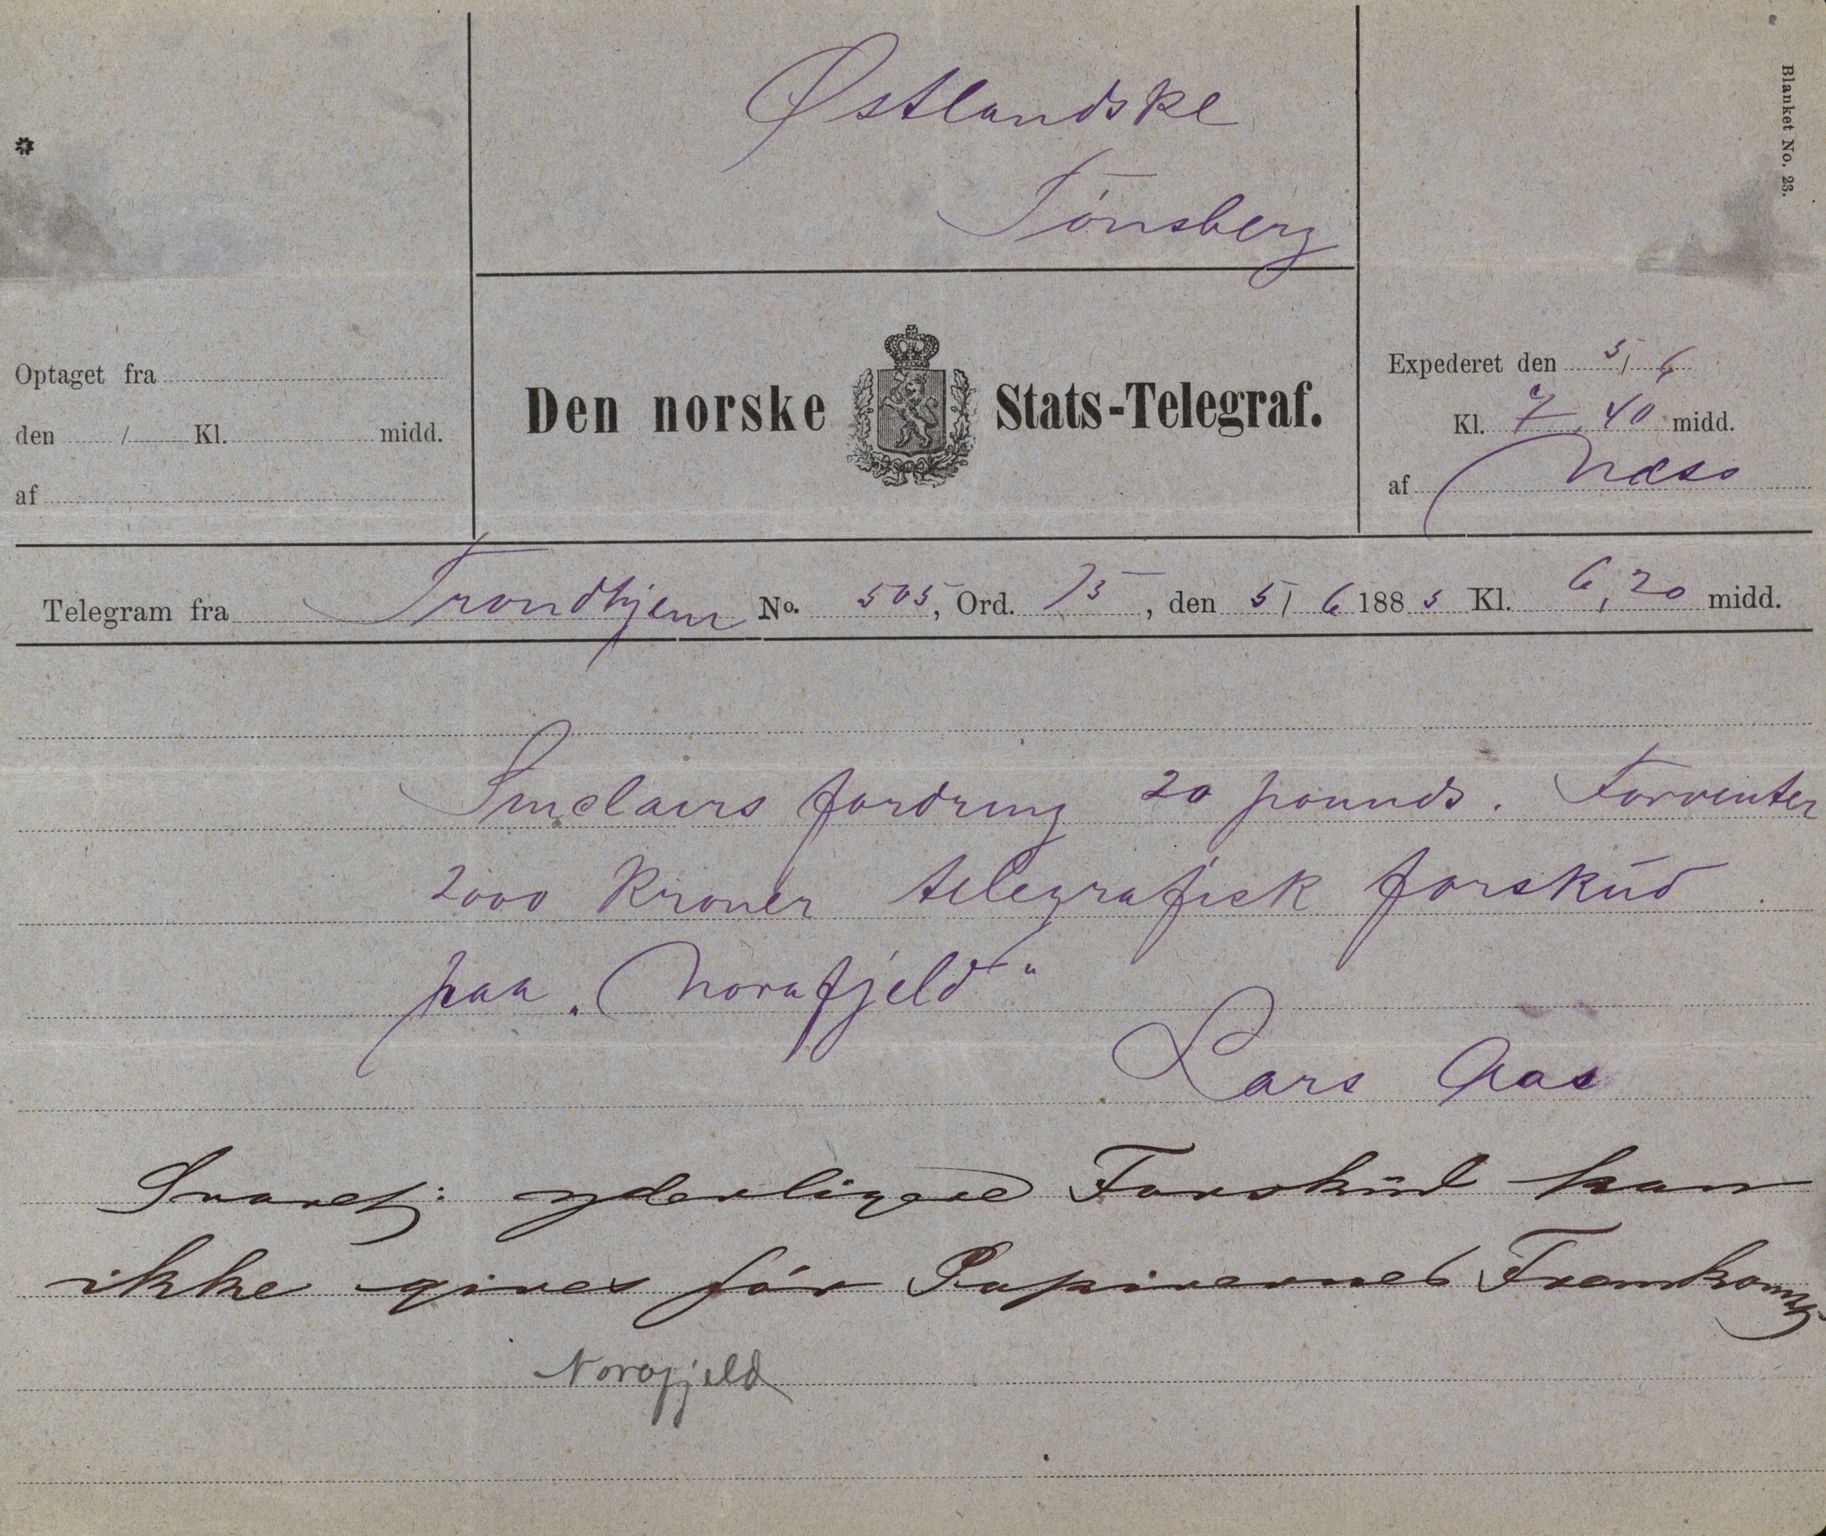 Blanket No. 23.
*
Østlandske
Tönsberg
Optaget fra
den / Kl. midd.
af
Den norske Stats-Telegraf.
Expederet den 5/6
Kl. 7,40 midd.
af Næss
Telegram fra Trondhjem No. 505, Ord. 15, den 5/6 1885 Kl. 6,20 midd.
Sinclairs fordring 20 pounds. Forventer
2000 kroner telegrafisk forskud
paa „Norafjeld"
Lars Aas
Svaret: yderligere Forskud kan
ikke gives før Papirernes Fremkomst
Norafjeld